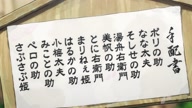 手配書
ポリの助
なな太夫
そしせの助
湯舟右衛門
とに右衛門
美帆の助
まりねぇ姫
はるかの助
小梅太夫
みことの助
ペロの助
さぶさぶ姫